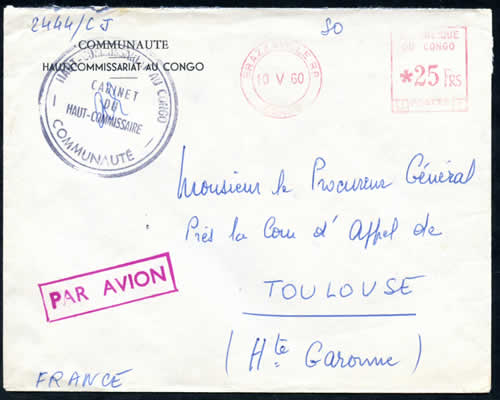 2444/CJ
COMMUNAUTE
HAUT-COMMISSARIAT AU CONGO
HAUT-COMMISSARIAT AU CONGO
CABINET
DU
HAUT-COMMISSAIRE
COMMUNAUTÉ
BRAZZAVILLE RP
10 V 60
REPUBLIQUE
DU CONGO
*25 FRS
POSTES
Monsieur le Procureur Général
Près la Cour d'Appel de
TOULOUSE
(Hte Garonne)
PAR AVION
FRANCE